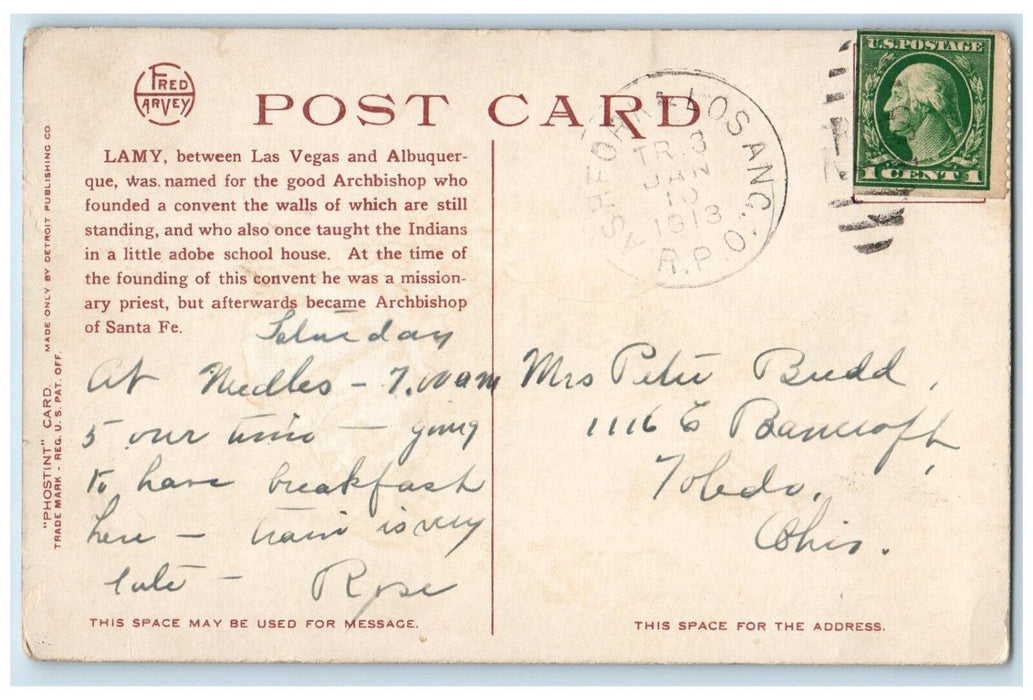 FRED
HARVEY
POST CARD
U.S. POSTAGE
1 CENT 1
LAMY, between Las Vegas and Albuquer-
que, was named for the good Archbishop who
founded a convent the walls of which are still
standing, and who also once taught the Indians
in a little adobe school house. At the time of
the founding of this convent he was a mission-
ary priest, but afterwards became Archbishop
of Santa Fe.
"PHOSTINT" CARD. MADE ONLY BY DETROIT PUBLISHING CO.
TRADE MARK - REG. U.S. PAT. OFF.
LOS ANG.
TR. 3
JAN
10
1913
R.P.O.
Saturday
At Needles - 7.00 am
5 our time - going
to have breakfast
here - train is very
late - Rose
Mrs Peter Budd,
1116 E Bancroft,
Toledo,
Ohio.
THIS SPACE MAY BE USED FOR MESSAGE.
THIS SPACE FOR THE ADDRESS.